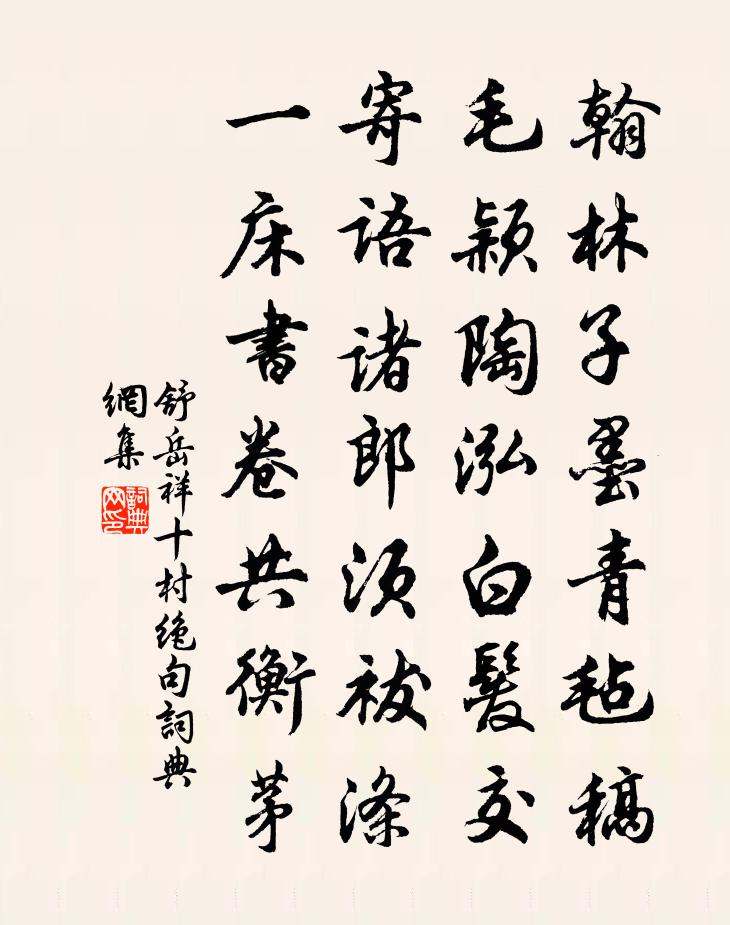 翰林子墨青毡稿
毛颖陶泓白髮交
寄语诸郎须祓滌
一床書卷共衡茅
舒岳祥十村绝句詞典
網集
詞典
网印